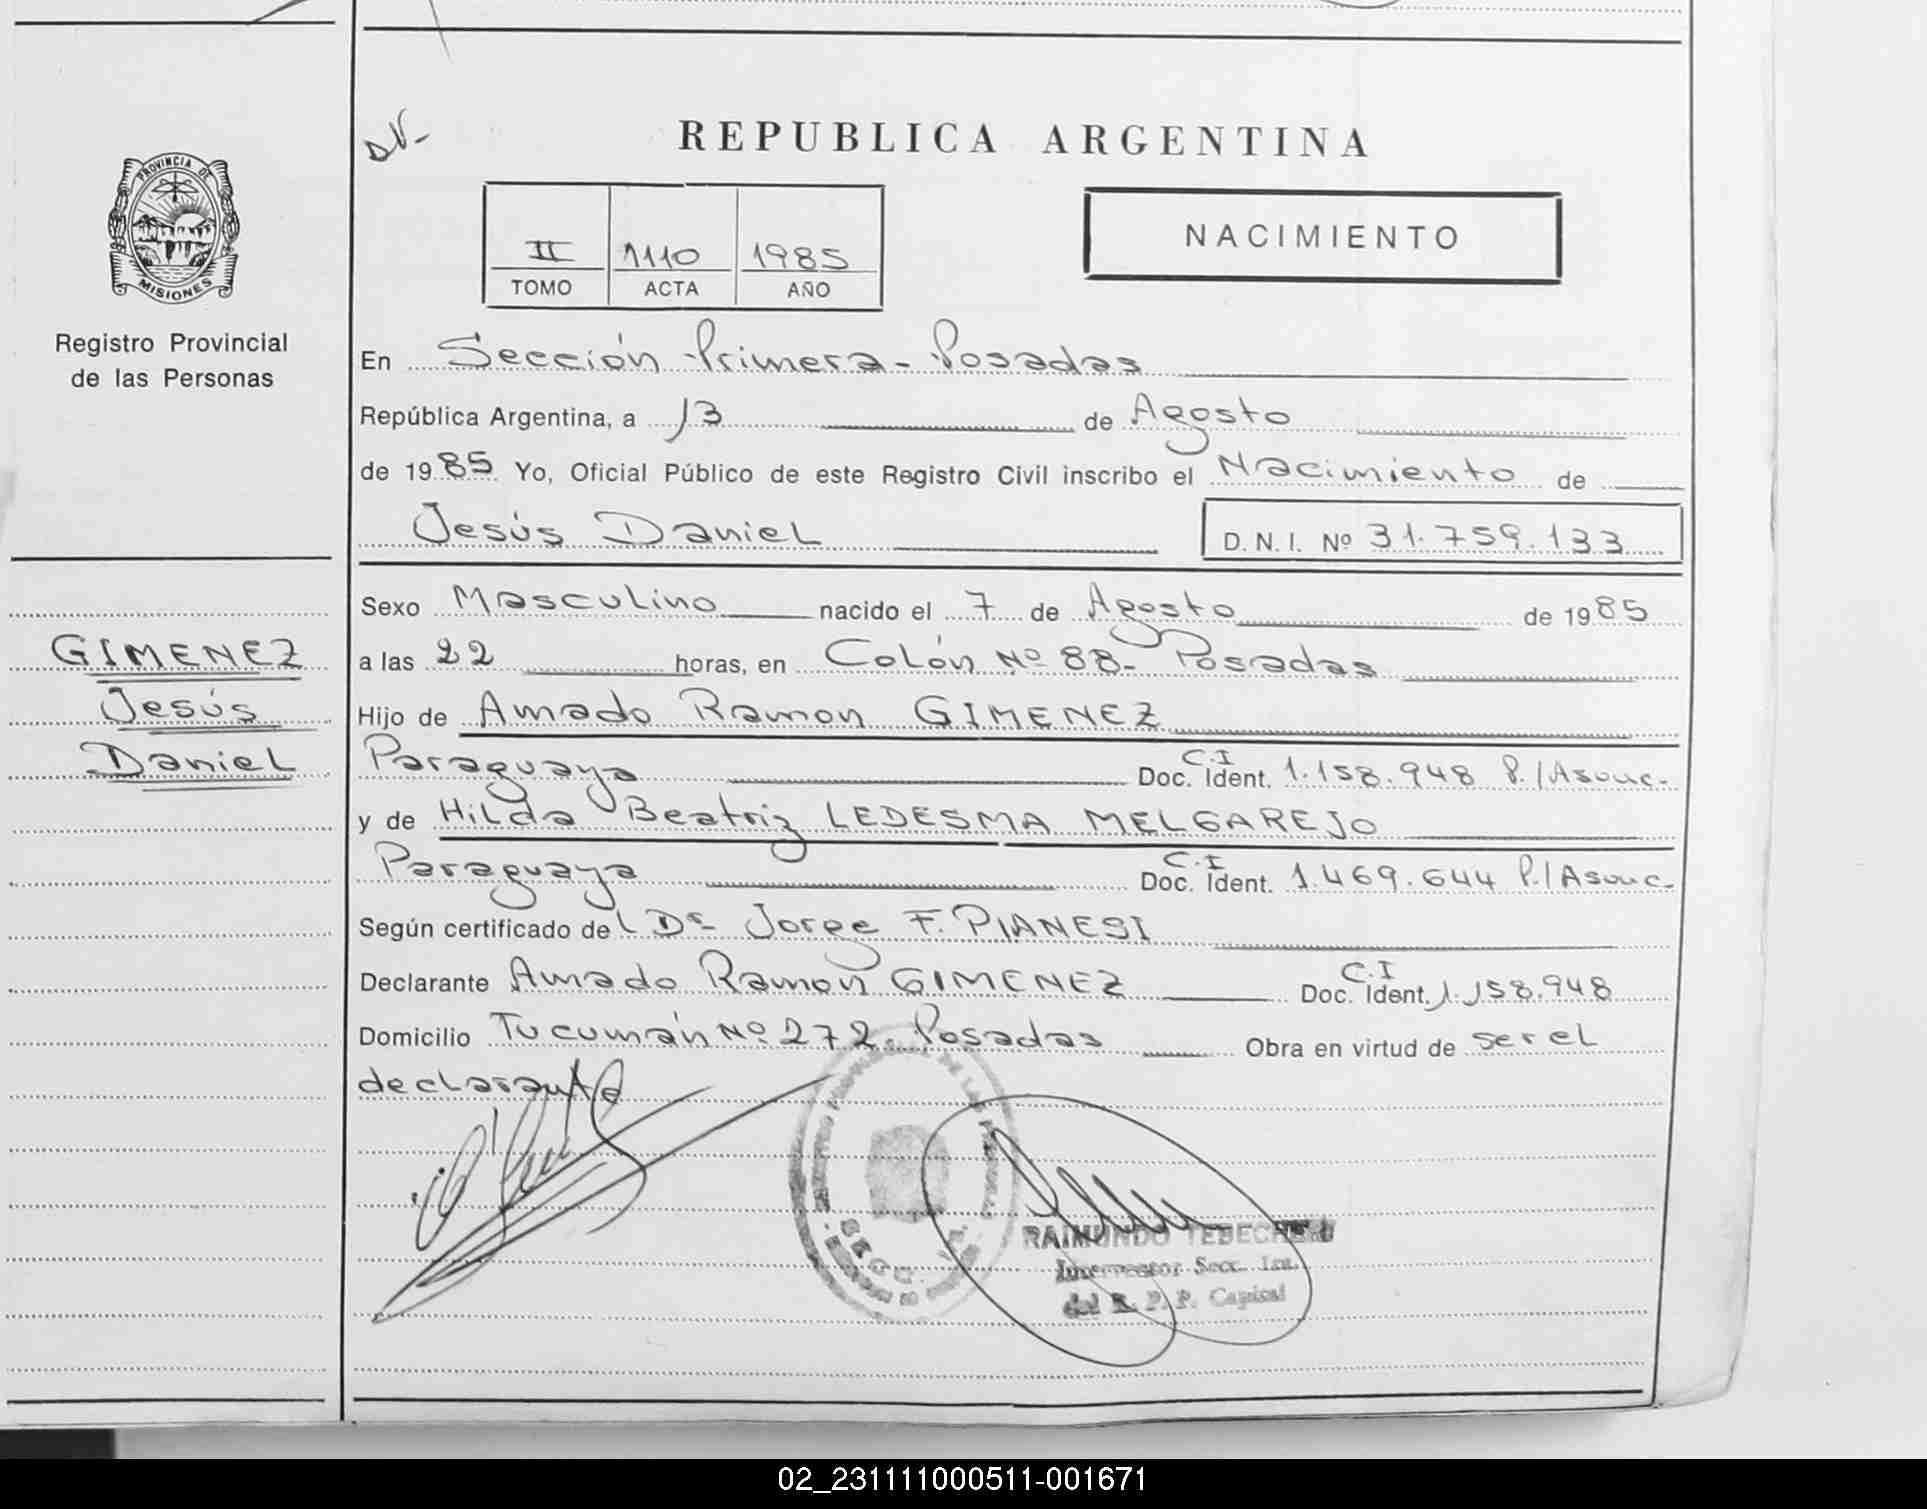 DN-
REPUBLICA ARGENTINA
PROVINCIA DE
MISIONES
Registro Provincial
de las Personas
II 1110 1985
TOMO ACTA AÑO
NACIMIENTO
En Sección Primera - Posadas
República Argentina, a 13 de Agosto
de 1985 Yo, Oficial Público de este Registro Civil inscribo el Nacimiento de
Jesús Daniel D. N. I. Nº 31.759.133
Sexo Masculino nacido el 7 de Agosto de 1985
GIMENEZ
Jesús
Daniel
a las 22 horas, en Colón Nº 88- Posadas
Hijo de Amado Ramon GIMENEZ
Paraguaya C.I Doc. Ident. 1.158.948 P./Asunc-
y de Hilda Beatriz LEDESMA MELGAREJO
Paraguaya C.I Doc. Ident. 1.469.644 P./Asunc-
Según certificado del Dr Jorge F. PIANESI
Declarante Amado Ramon GIMENEZ C.I Doc. Ident. 1.158.948
Domicilio Tucumán Nº 272. Posadas Obra en virtud de ser el
declarante
DE LAS
SECC.
RAIMUNDO
Interventor Secc. 1ra.
del R. P. P. Capital
02_231111000511-001671